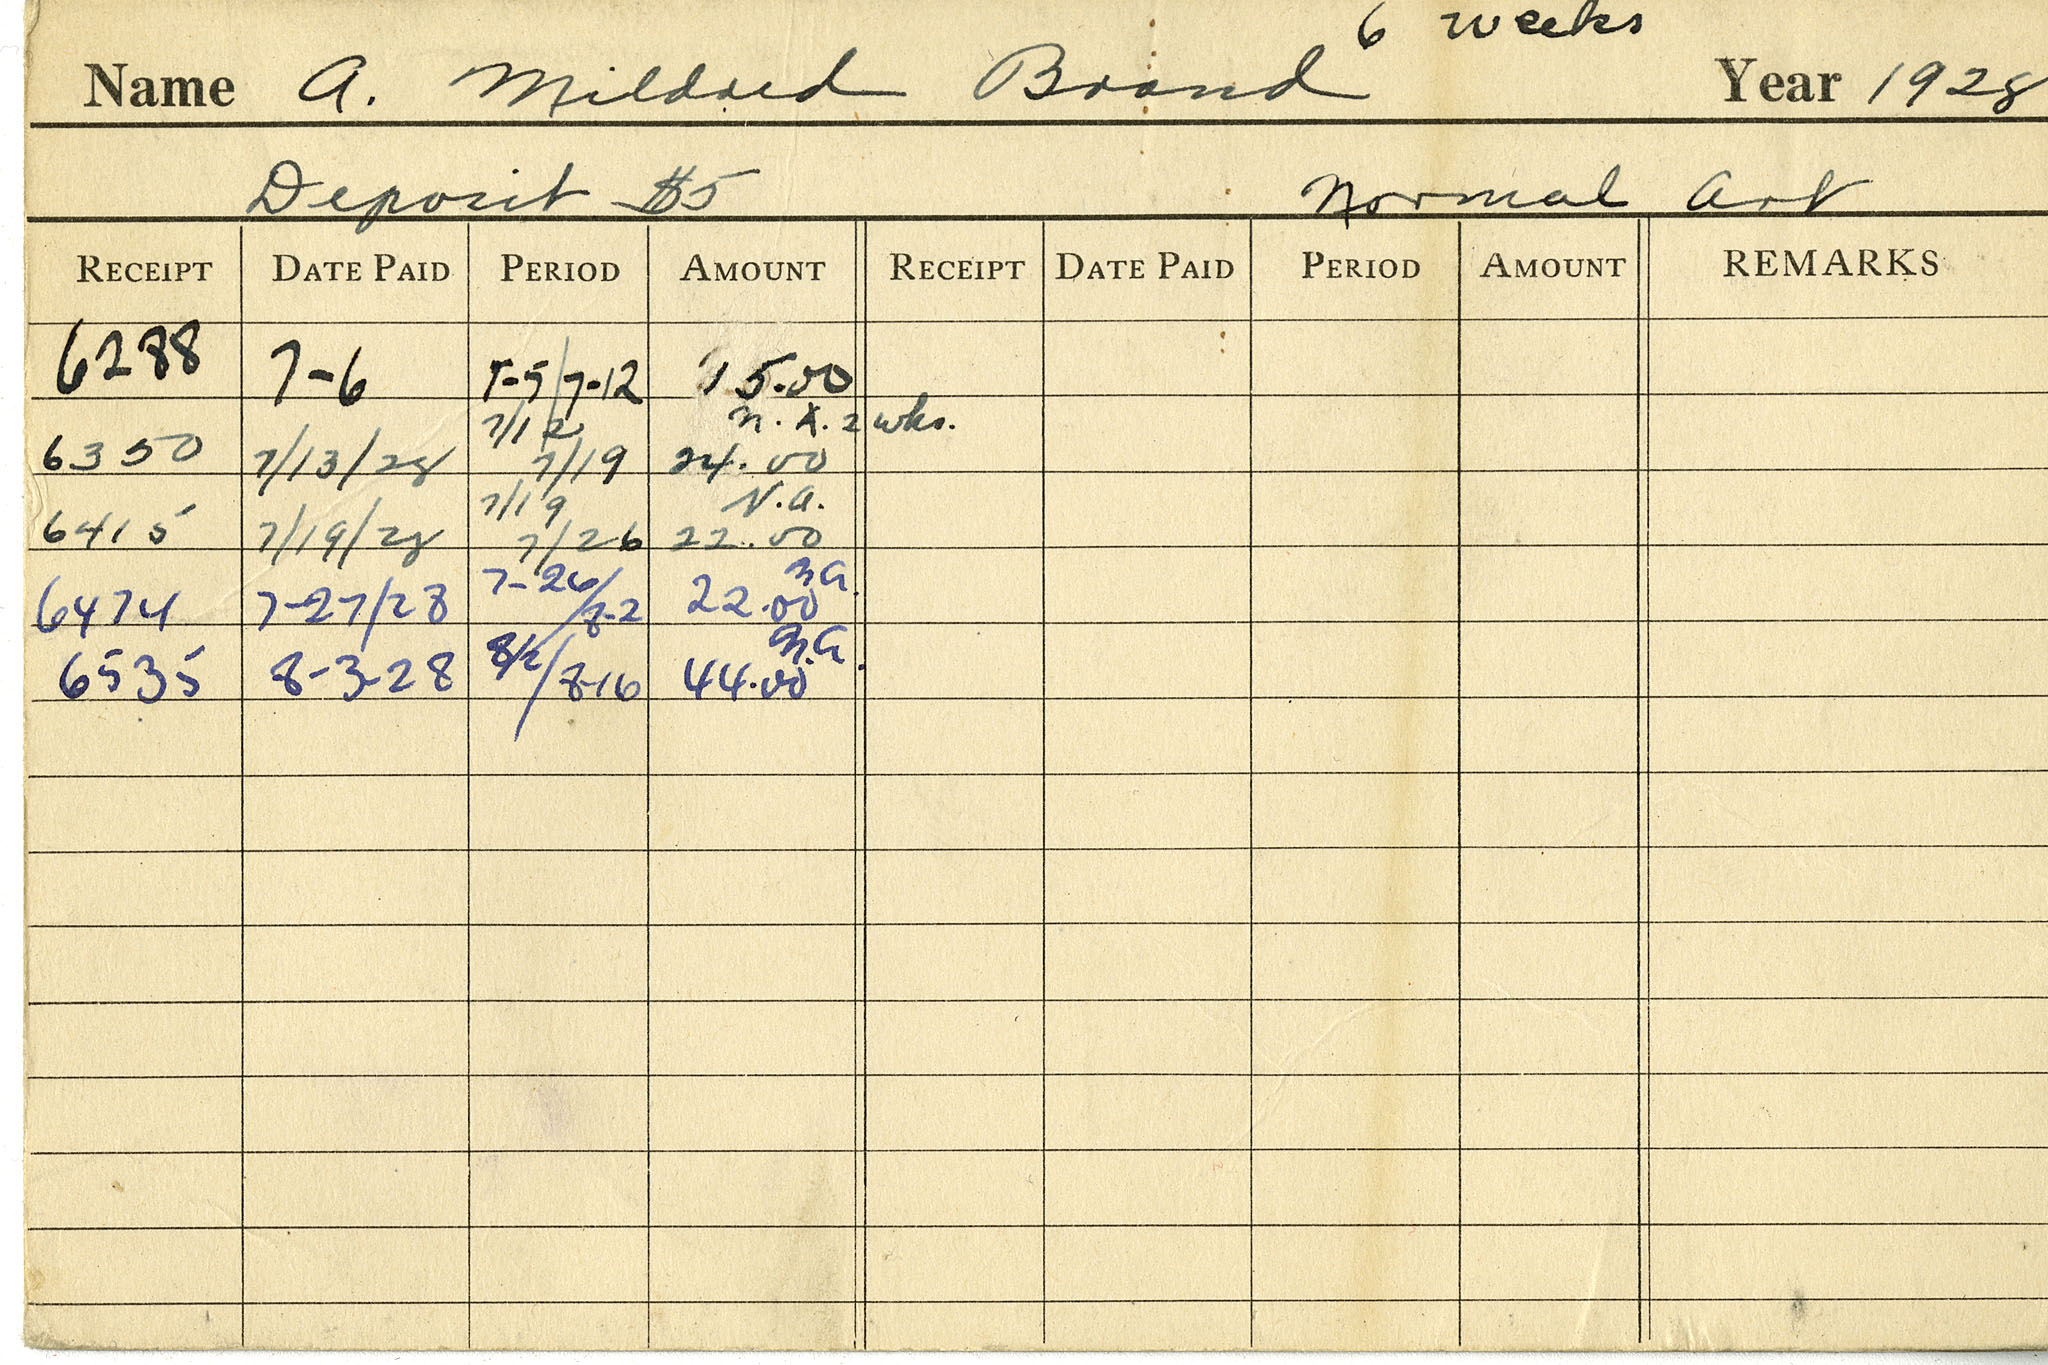 6 weeks
Name A. Mildred Brand Year 1928
Deposit $5 Normal Art
RECEIPT DATE PAID PERIOD AMOUNT RECEIPT DATE PAID PERIOD AMOUNT REMARKS
6288 7-6 7-5/7-12 15.00
7/12 N.A. 2 wks.
6350 7/13/28 7/19 24.00
7/19 N.A.
6415 7/19/28 7/26 22.00
7-26/ N.A.
6474 7-27/28 8-2 22.00
8/2/ N.A.
6535 8-3-28 8-16 44.00